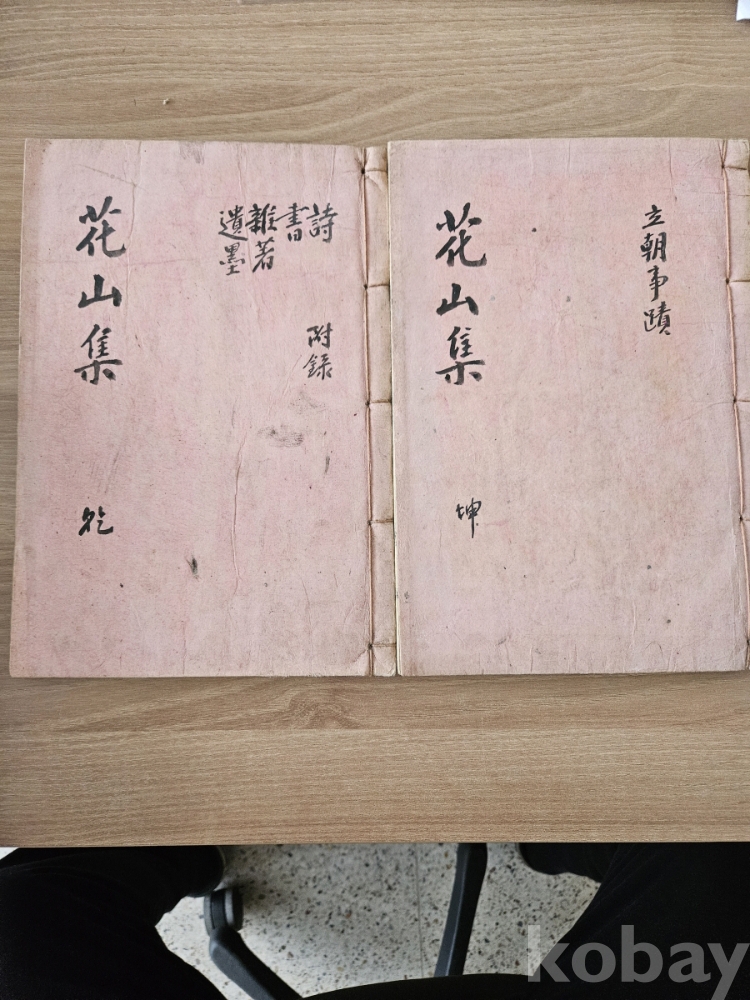 花山集
乾
詩
書
雜著
遺墨
附錄
花山集
坤
立朝事蹟
kobay